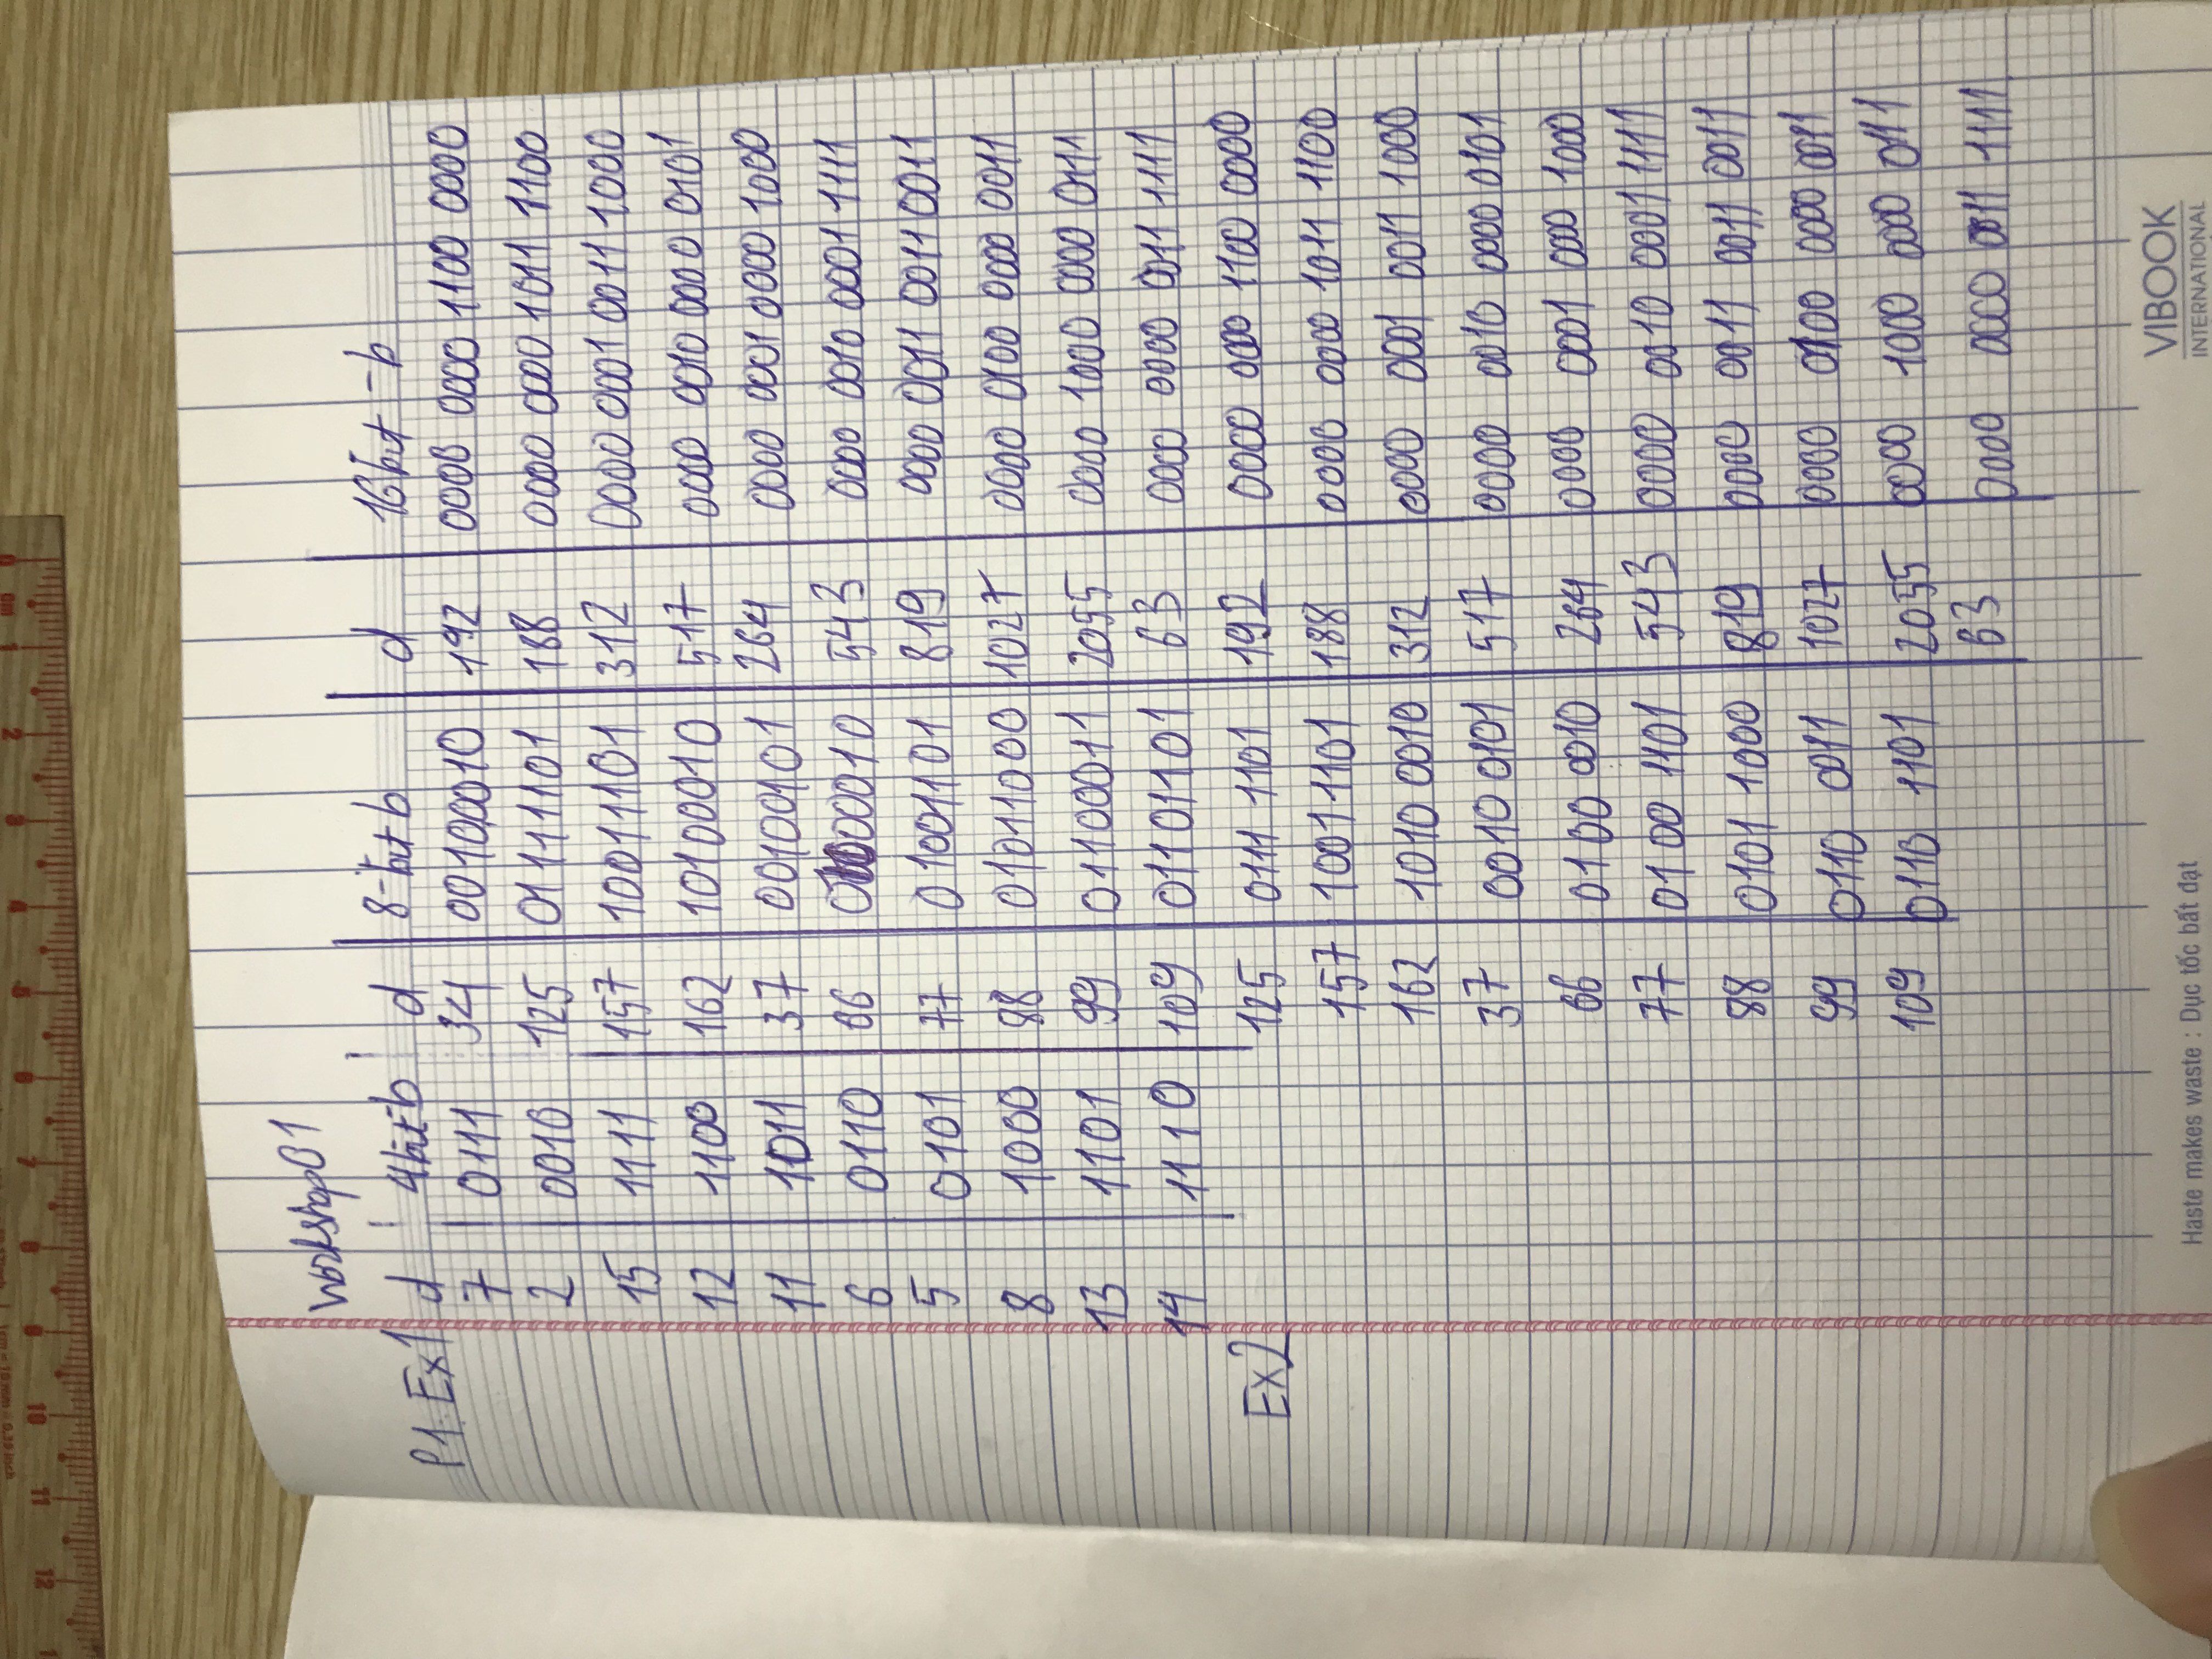 12 11 10 9 8 7 6 5 4 3 2 1 cm 0
Workshop 01
P1. Ex1 d 4bit-b d 8-bit b d 16bit-b
7 0111 34 00100010 192 0000 0000 1100 0000
2 0010 125 01111101 188 0000 0000 1011 1100
15 1111 157 10011101 312 0000 0001 0011 1000
12 1100 162 10100010 517 0000 0010 0000 0101
11 1011 37 00100101 264 0000 0001 0000 1000
6 0110 66 01000010 543 0000 0010 0001 1111
5 0101 77 01001101 819 0000 0011 0011 0011
8 1000 88 01011000 1027 0000 0100 0000 0011
13 1101 99 01100011 2055 0000 1000 0000 0111
14 1110 109 01101101 63 0000 0000 0011 1111
Ex2 125 0111 1101 192 0000 0000 1100 0000
157 1001 1101 188 0000 0000 1011 1100
162 1010 0010 312 0000 0001 0011 1000
37 0010 0101 517 0000 0010 0000 0101
66 0100 0010 264 0000 0001 0000 1000
77 0100 1101 543 0000 0010 0001 1111
88 0101 1000 819 0000 0011 0011 0011
99 0110 0011 1027 0000 0100 0000 0011
109 0110 1101 2055 0000 1000 0000 0111
63 0000 0000 0011 1111
Haste makes waste : Dục tốc bất đạt
VIBOOK
INTERNATIONAL